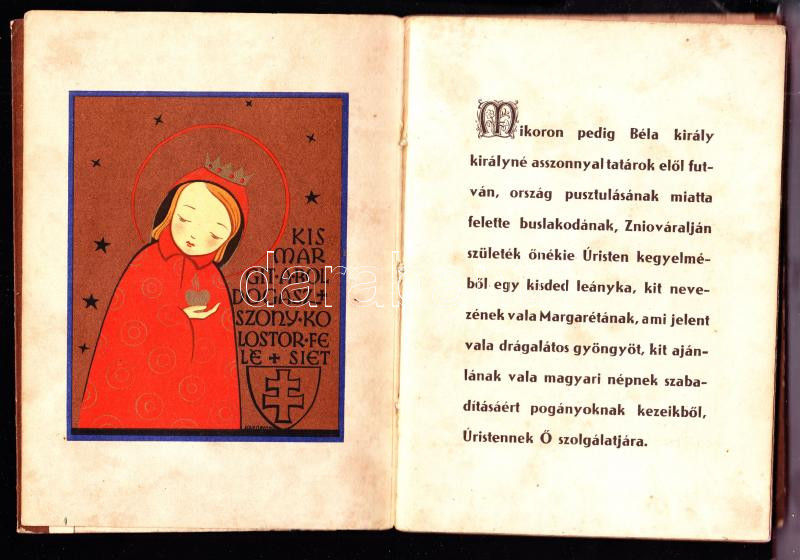 KIS
MAR
GIT·A·BOL
DOGASZ+
SZONY·KO
LOSTOR·FE
LE + SIET
Mikoron pedig Béla király
királyné asszonnyal tatárok elől fut-
ván, ország pusztulásának miatta
felette buslakodának, Zniováralján
születék őnékie Úristen kegyelmé-
ből egy kisded leányka, kit neve-
zének vala Margarétának, ami jelent
vala drágalátos gyöngyöt, kit aján-
lának vala magyari népnek szaba-
dításáért pogányoknak kezeikből,
Úristennek Ő szolgálatjára.